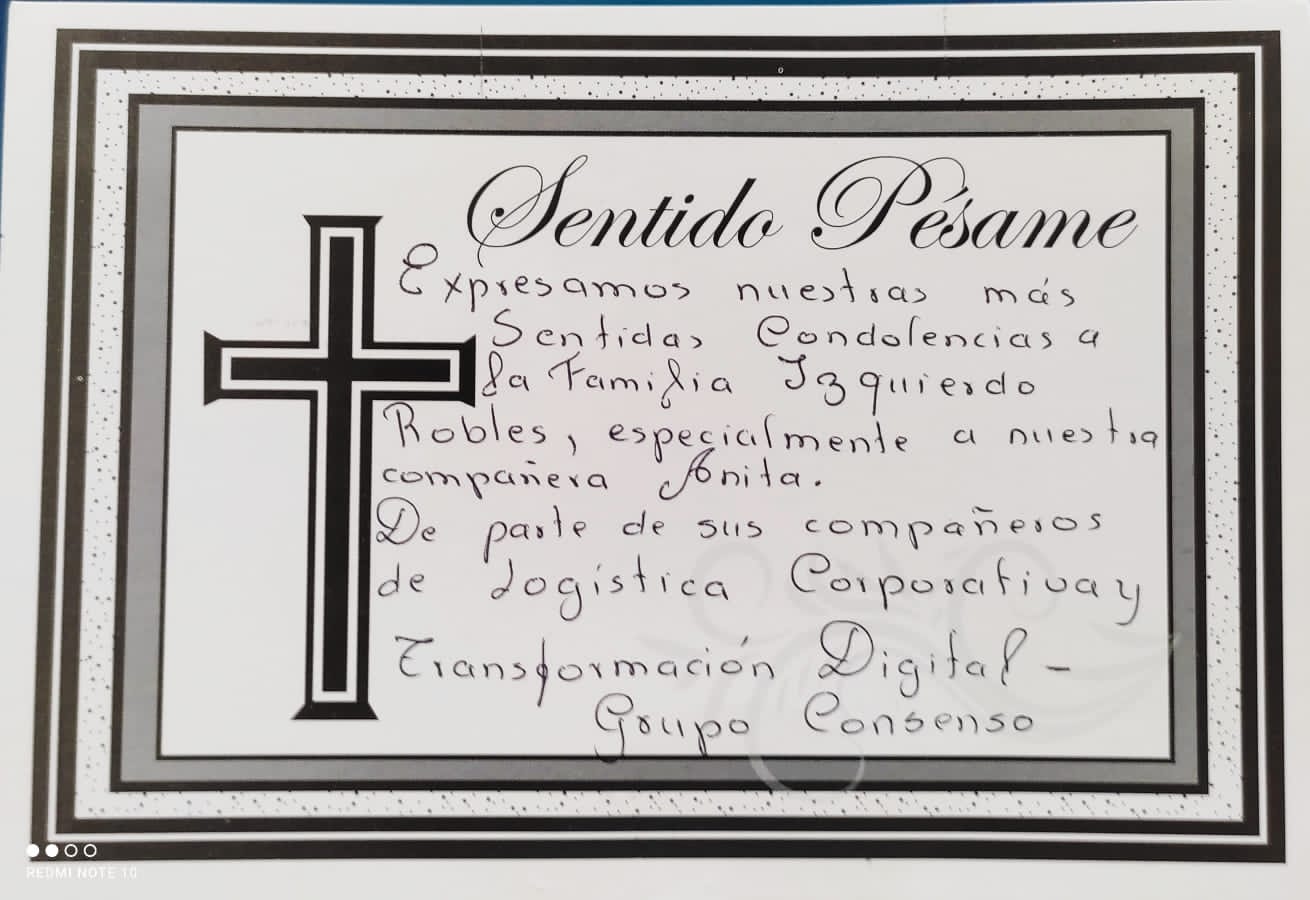 Sentido Pésame
Expresamos nuestras más
Sentidas Condolencias a
la Familia Izquierdo
Robles, especialmente a nuestra
compañera Anita.
De parte de sus compañeros
de Logística Corporativa y
Transformación Digital -
Grupo Consenso
REDMI NOTE 10